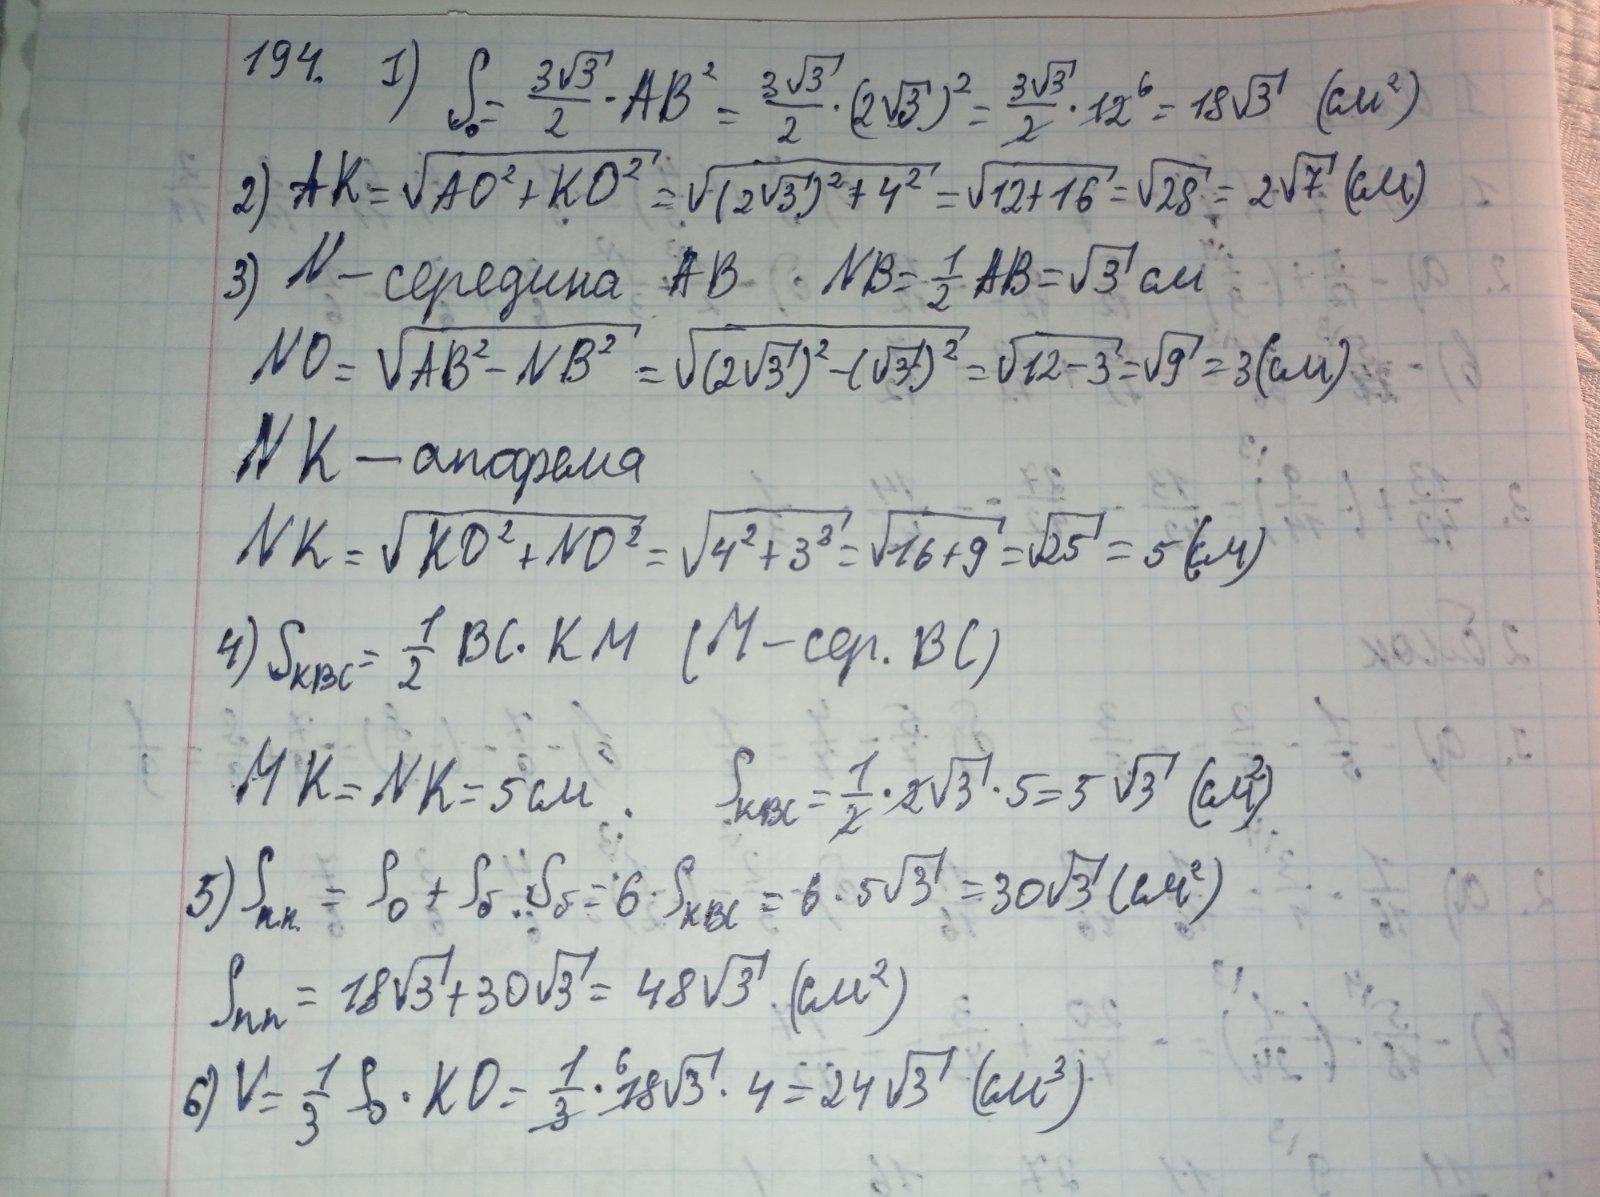 194. 1) Sₒ = 3√3/2 · AB² = 3√3/2 · (2√3)² = 3√3/2 · 12⁶ = 18√3 (см²)
2) AK = √(AO² + KO²) = √((2√3)² + 4²) = √(12+16) = √28 = 2√7 (см)
3) N – середина AB. NB = 1/2 AB = √3 см
NO = √(AB² – NB²) = √((2√3)² – (√3)²) = √(12–3) = √9 = 3 (см)
NK – апофема
NK = √(KO² + NO²) = √(4² + 3²) = √(16+9) = √25 = 5 (см)
4) S_KBC = 1/2 BC · KM (M – сер. BC)
MK = NK = 5 см. S_KBC = 1/2 · 2√3 · 5 = 5√3 (см²)
5) Sп.п. = Sₒ + Sб. Sб = 6 · S_KBC = 6 · 5√3 = 30√3 (см²)
Sпп = 18√3 + 30√3 = 48√3 (см²)
6) V = 1/3 Sₒ · KO = 1/3 · ⁶18√3 · 4 = 24√3 (см³)